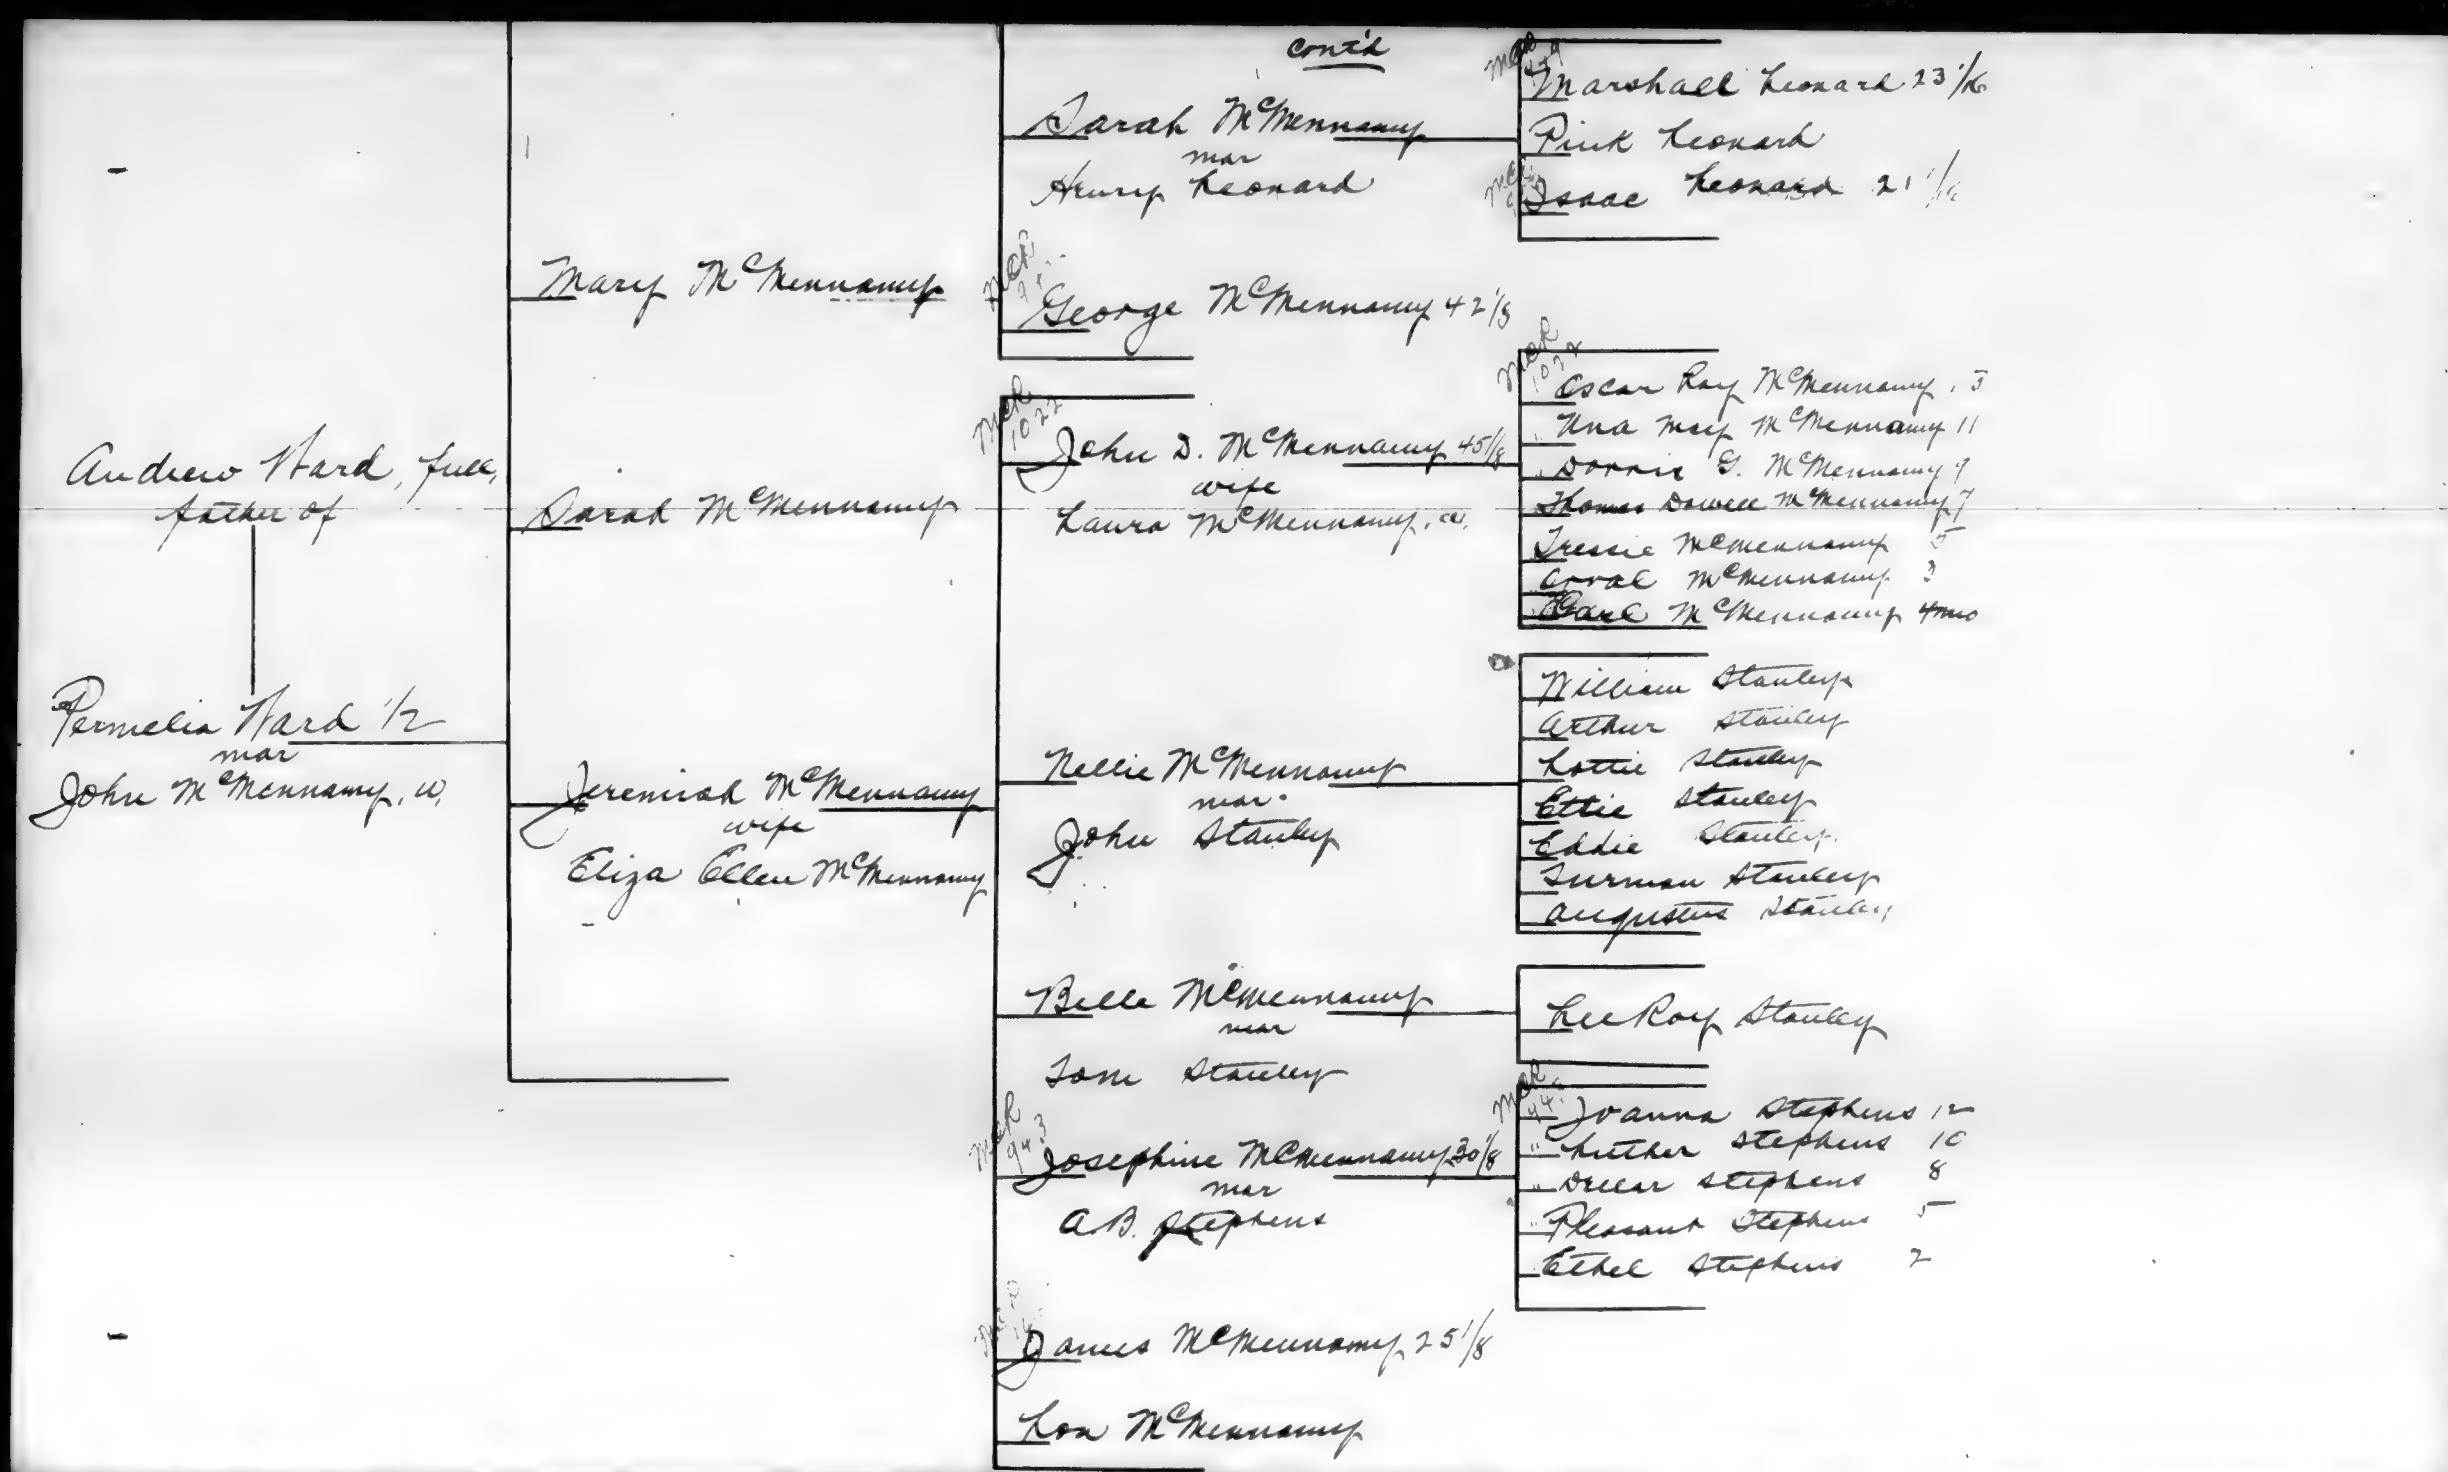 Andrew Ward, full,
father of
Permelia Ward 1/2
mar
John McMennamy, w.
Mary McMennamy
Sarah McMennamy
Jeremiah McMennamy
wife
Eliza Ellen McMennamy
cont'd
Sarah McMennamy
mar
Henry Leonard
MCR
George McMennamy 42 1/8
MCR
1022
John D. McMennamy 45 1/8
wife
Laura McMennamy, w.
Nellie McMennamy
mar
John Stanley
Belle McMennamy
mar
Tom Stanley
MCR
943
Josephine McMennamy 30 1/8
mar
A.B. Stephens
James McMennamy 25 1/8
Lon McMennamy
Marshall Leonard 23 1/16
Pink Leonard
Isaac Leonard 21
MCR
1022
Oscar Ray McMennamy
" Una May McMennamy 11
" Dorris G. McMennamy 9
Thomas Dowell McMennamy 7
Tressie McMennamy 5
Orval McMennamy 3
Earl McMennamy 4mo
William Stanley
Arthur Stanley
Lottie Stanley
Ettie Stanley
Eddie Stanley
Turman Stanley
Augustus Stanley
LeeRoy Stanley
MCR
Joanna Stephens 12
" Luther Stephens 10
" Stephens 8
" Pleasant Stephens 5
Ethel Stephens 2